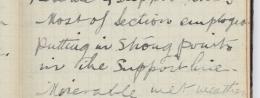 Most of section employed
putting in Strong points
in the Support line.
Miserable wet weather